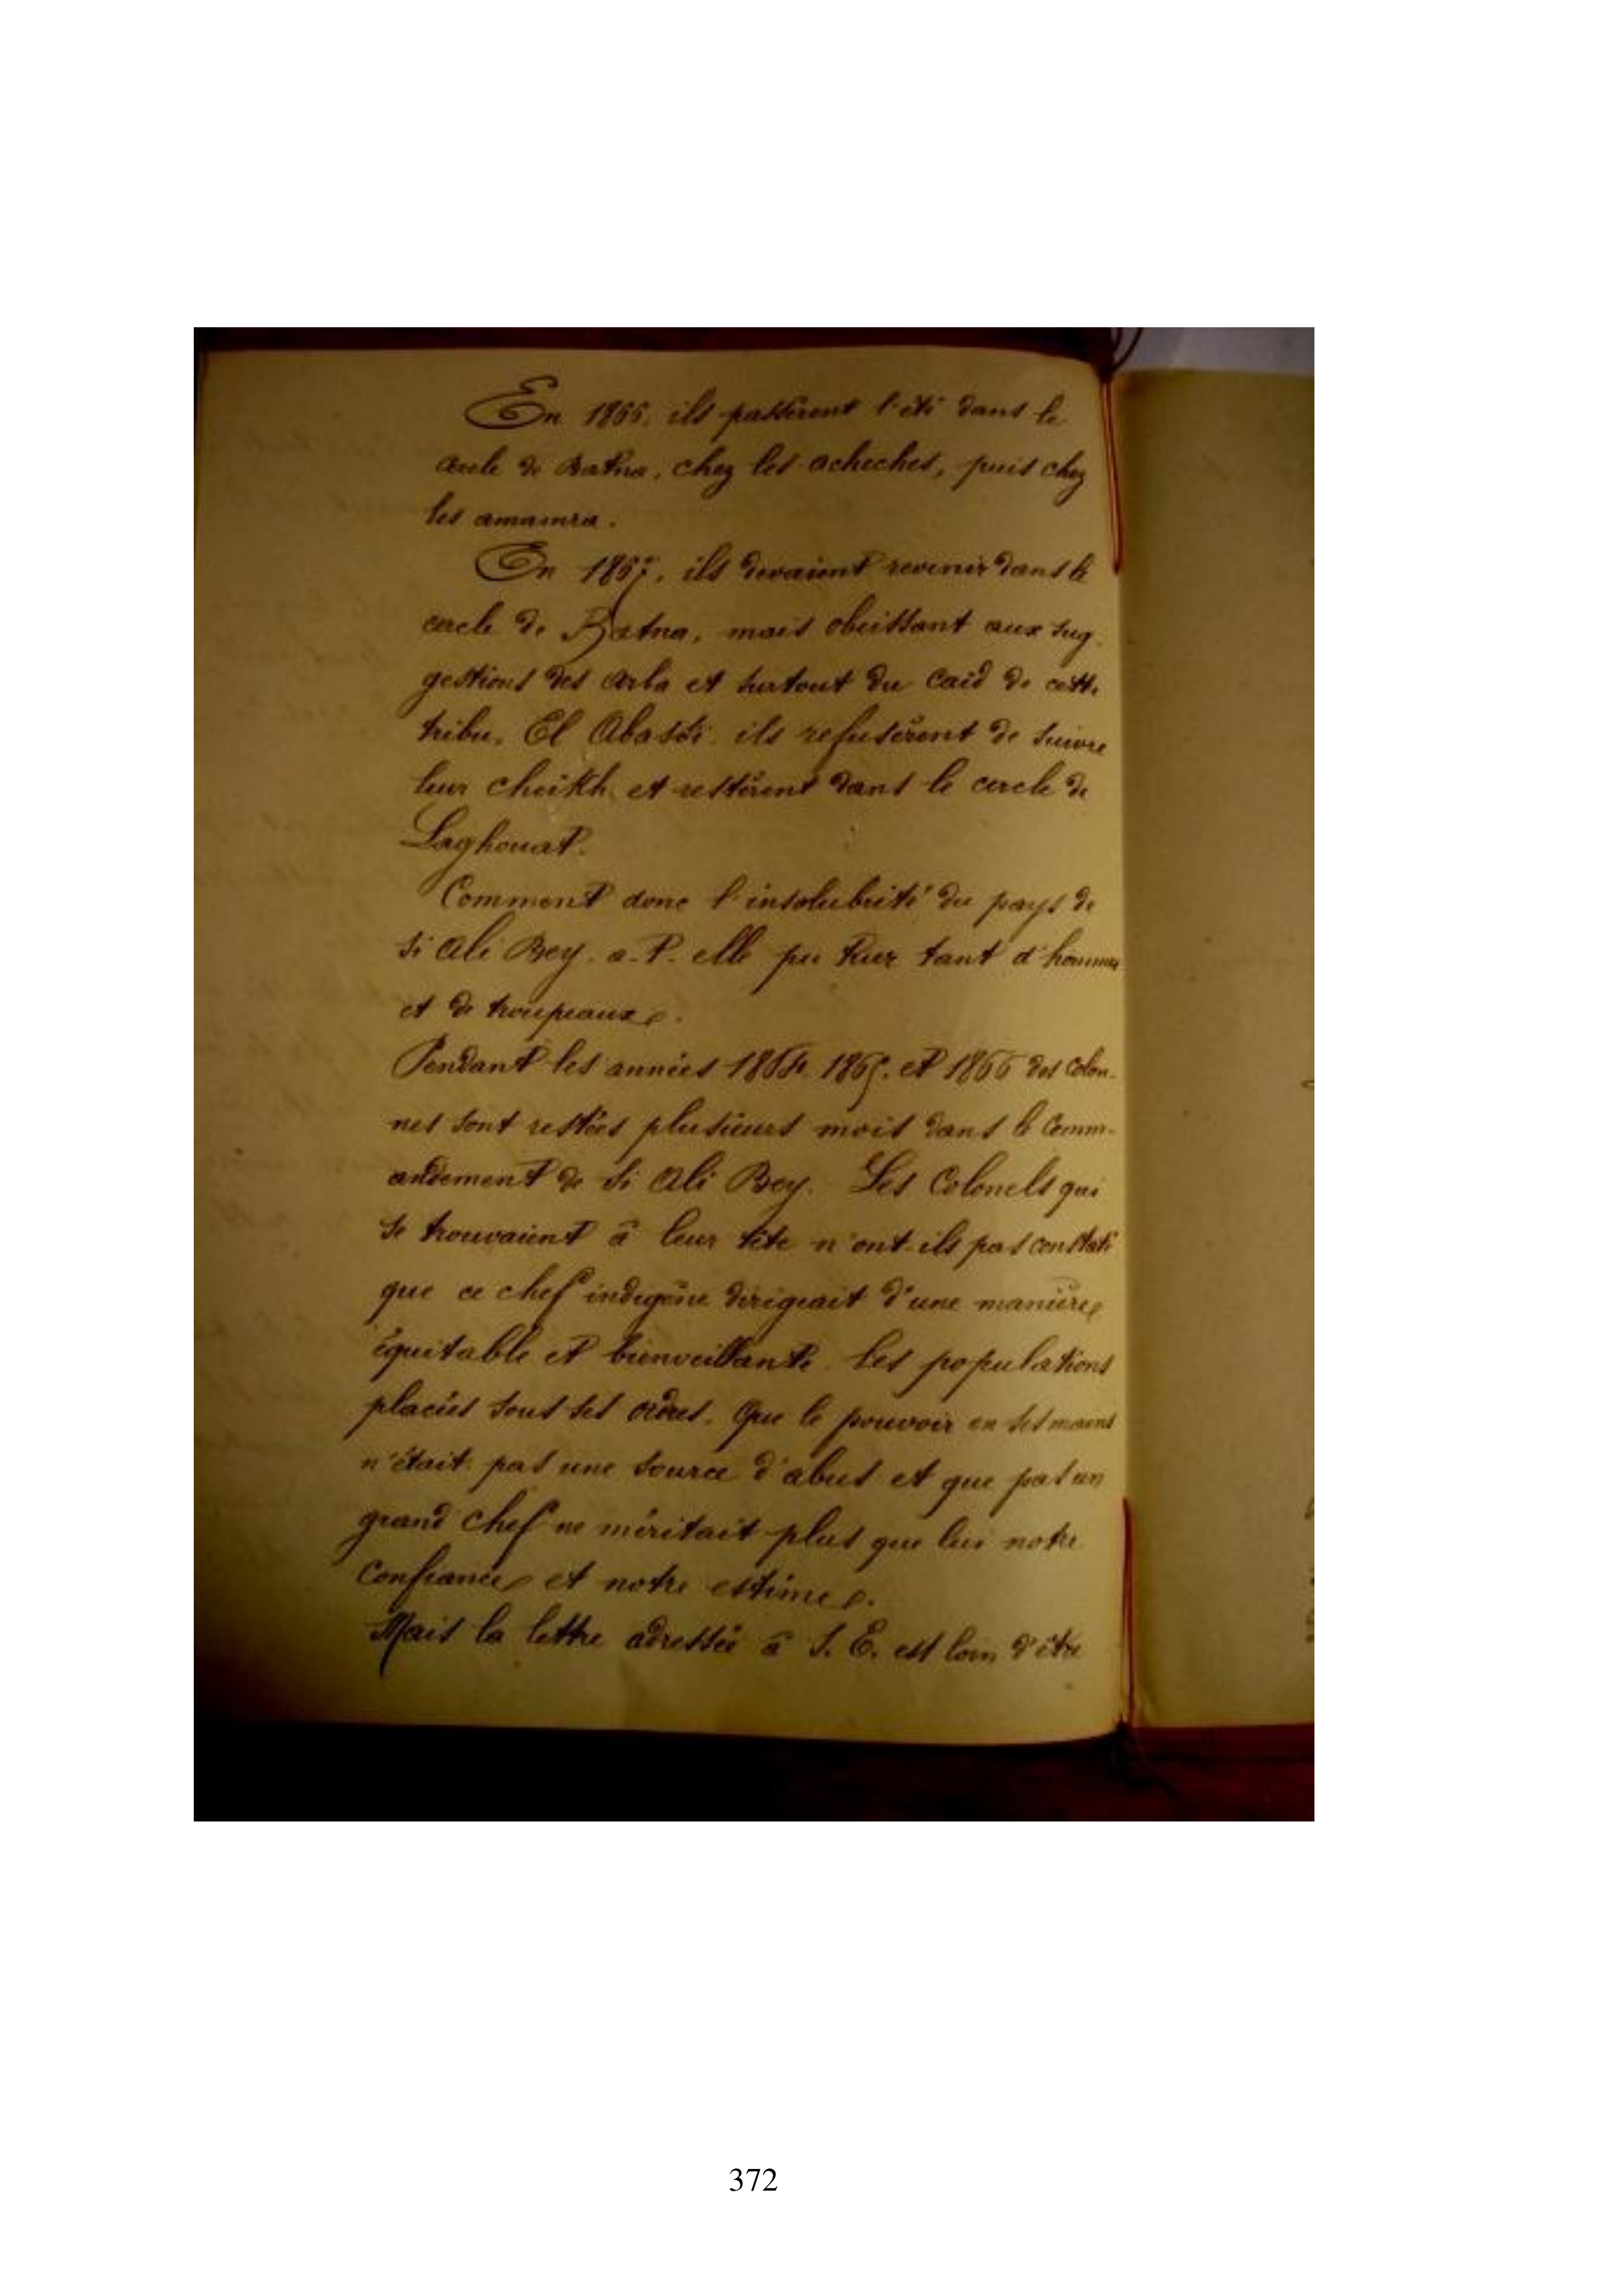 En 1866, ils passèrent l'été dans le
cercle de Batna, chez les acheches, puis chez
les amamra.
En 1867, ils devaient revenir dans le
cercle de Batna, mais obéissant aux sug-
gestions des arba et surtout du caïd de cette
tribu, El Abassi ils refusèrent de suivre
leur cheikh et restèrent dans le cercle de
Laghouat.
Comment donc l'insalubrité du pays de
Si Ali Bey a-t-elle pu tuer tant d'hommes
et de troupeaux.
Pendant les années 1864, 1865, et 1866 des colon-
nes sont restées plusieurs mois dans le Comm-
andement de Si Ali Bey. Les Colonels qui
se trouvaient à leur tête n'ont-ils pas constaté
que ce chef indigène dirigeait d'une manière
équitable et bienveillante les populations
placées sous ses ordres. Que le pouvoir en ses mains
n'était pas une source d'abus et que pas un
grand chef ne méritait plus que lui notre
confiance et notre estime.
Mais la lettre adressée à S. E. est loin d'être
372